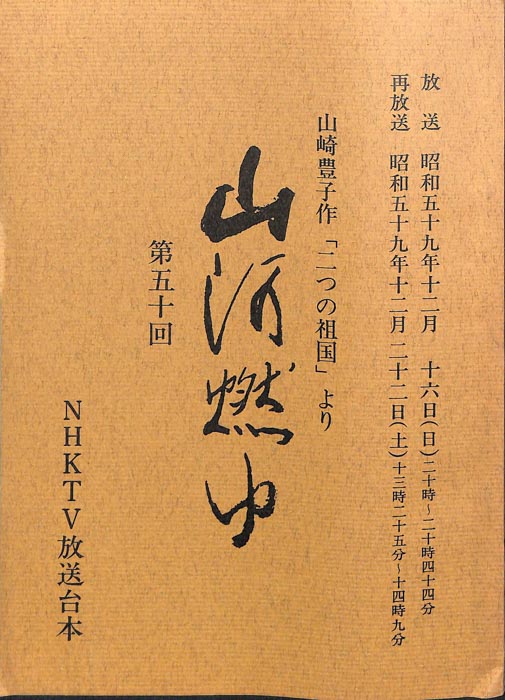 放送 昭和五十九年十二月 十六日(日)二十時~二十時四十四分
再放送 昭和五十九年十二月二十二日(土)十三時二十五分~十四時九分
山崎豊子作「二つの祖国」より
山河燃ゆ
第五十回
NHKTV放送台本